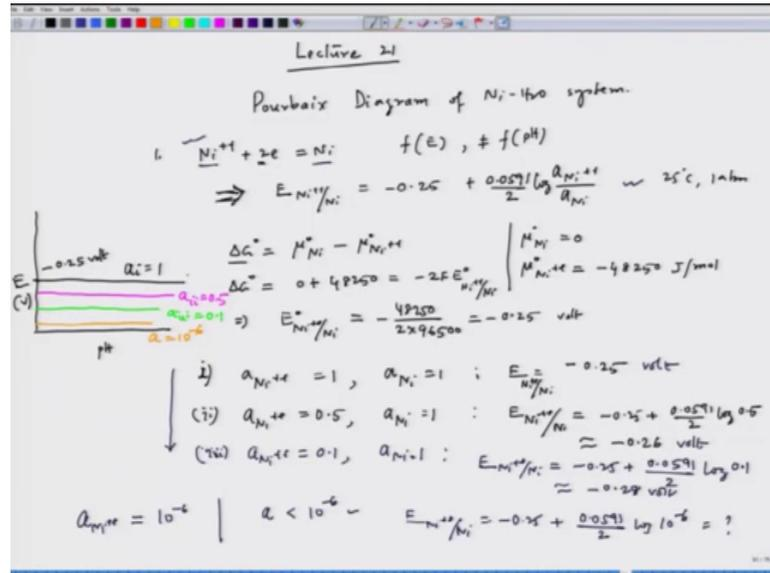 Lecture 21
Pourbaix Diagram of Ni-H2O system.
1. Ni++ + 2e = Ni f(E), ≠ f(pH)
⇒ E Ni++/Ni = -0.25 + 0.0591/2 log a Ni++/a Ni ~ 25°C, 1 atm
ΔG° = μ°Ni - μ°Ni++ | μ°Ni = 0
ΔG° = 0 + 48250 = -2FE°Ni++/Ni | μ°Ni++ = -48250 J/mol
⇒ E°Ni++/Ni = - 48250/2×96500 = -0.25 volt
E (V)
-0.25 volt
ai = 1
aii = 0.5
aiii = 0.1
a = 10^-6
pH
i) a Ni++ = 1, a Ni = 1 ; E Ni++/Ni = -0.25 volt
(ii) a Ni++ = 0.5, a Ni = 1 : E Ni++/Ni = -0.25 + 0.0591/2 log 0.5
≈ -0.26 volt
(iii) a Ni++ = 0.1, a Ni = 1 : E Ni++/Ni = -0.25 + 0.0591/2 log 0.1
≈ -0.28 volt
a Ni++ = 10^-6 | a < 10^-6 - E Ni++/Ni = -0.25 + 0.0591/2 log 10^-6 = ?